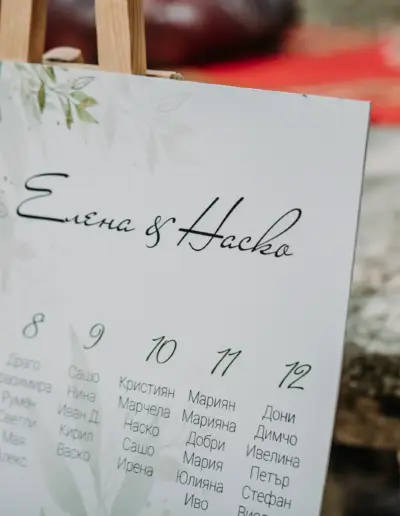 Елена & Наско
8
Драго
расимира
Румен
Светли
Мая
лекс
9
Сашо
Нина
Иван Д.
Кирил
Васко
10
Кристиян
Марчела
Наско
Сашо
Ирена
11
Мариян
Марияна
Добри
Мария
Юлияна
Иво
12
Дони
Димчо
Ивелина
Петър
Стефан